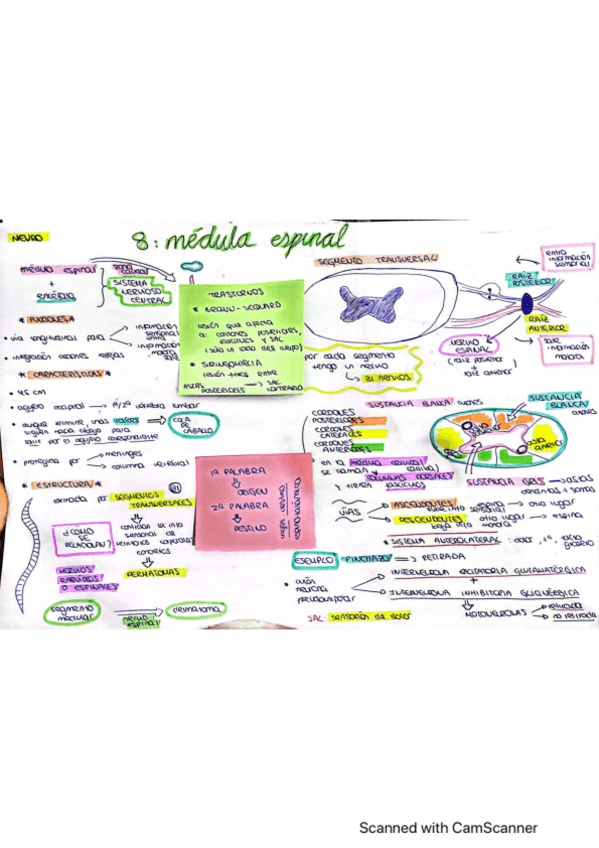 NEURO
8: médula espinal
médula espinal
+
encéfalo
zona caudal
SISTEMA
NERVIOSO
CENTRAL
* FUNCIONES *
• vía longitudinal para
información sensorial
información motora
• integración acciones reflejas
* CARACTERÍSTICAS *
• 45 cm
• agujero occipital → 1ª/2ª vértebra lumbar
• aunque termine, unas raíces
siguen hacia abajo para
salir por el agujero correspondiente
COLA
DE
CABALLO
• protegida por
meninges
columna vertebral
* ESTRUCTURA *
formada por SEGMENTOS
TRANSVERSALES
31
¿CÓMO
SE
RELACIONAN?
NERVIOS
RAQUÍDEOS
O ESPINALES
controlan la info
sensorial de
territorios corporales
concretos
DERMATOMAS
segmento
medular
nervio
espinal
dermatoma
TRASTORNOS
* BROWN-SEQUARD
lesión que afecta
a: cordones posteriores,
laterales y SAL
(sólo un lado del cuerpo)
* SIRINGOMIELIA
lesión fibras entre
astas
posteriores → SAL
contrario
1ª PALABRA
ORIGEN
2ª PALABRA
DESTINO
SEGMENTO TRANSVERSAL
por cada segmento
tengo un nervio
31 NERVIOS
entra
información
sensorial
RAÍZ
POSTERIOR
RAÍZ
ANTERIOR
NERVIO
ESPINAL
(raíz posterior
+
raíz anterior)
sale
información
motora
SUSTANCIA BLANCA axones
CORDONES
POSTERIORES
CORDONES
LATERALES
CORDONES
ANTERIORES
SUSTANCIA
BLANCA
axones
asta
anterior
→ en la médula cervical
se llaman
COLUMNAS DORSALES
y tienen fascículos
SUSTANCIA GRIS → astas
dendritas + somas
VÍAS
ASCENDENTES espina → otro lugar
sube info sensorial
DESCENDENTES otro lugar → espina
baja info motora
* SISTEMA ANTEROLATERAL: dolor, tª, tacto
grosero
EJEMPLO PINCHAZO ⇒ RETIRADA
neurona
pseudounipolar
INTERNEURONA EXCITATORIA GLUTAMATÉRGICA
+
INTERNEURONA INHIBITORIA GLICINÉRGICA
MOTONEURONAS
retirada
no retirada
SAL: sensación de dolor
Scanned with CamScanner